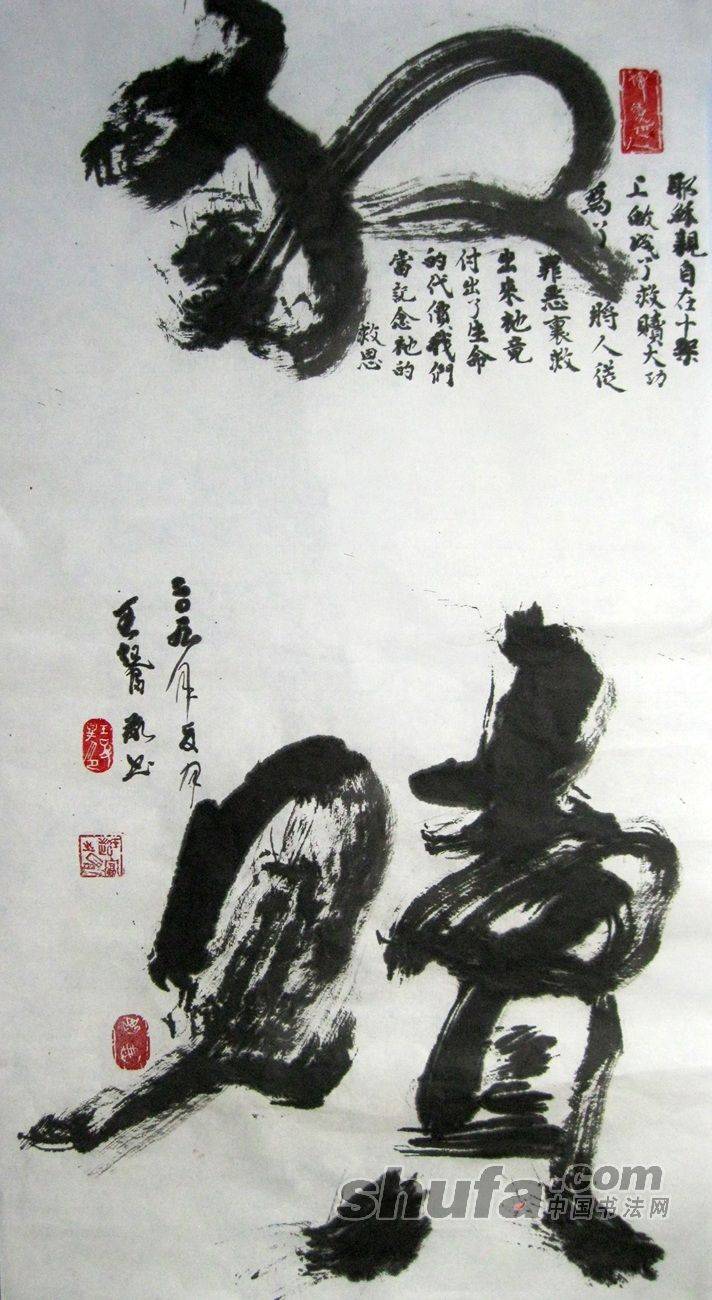 救
贖
耶穌親自在十架
上做成了救贖大功
為了 將人從
罪惡裏救
出來祂竟
付出了生命
的代價我們
當記念祂的
救恩
shufa.com
中国书法网